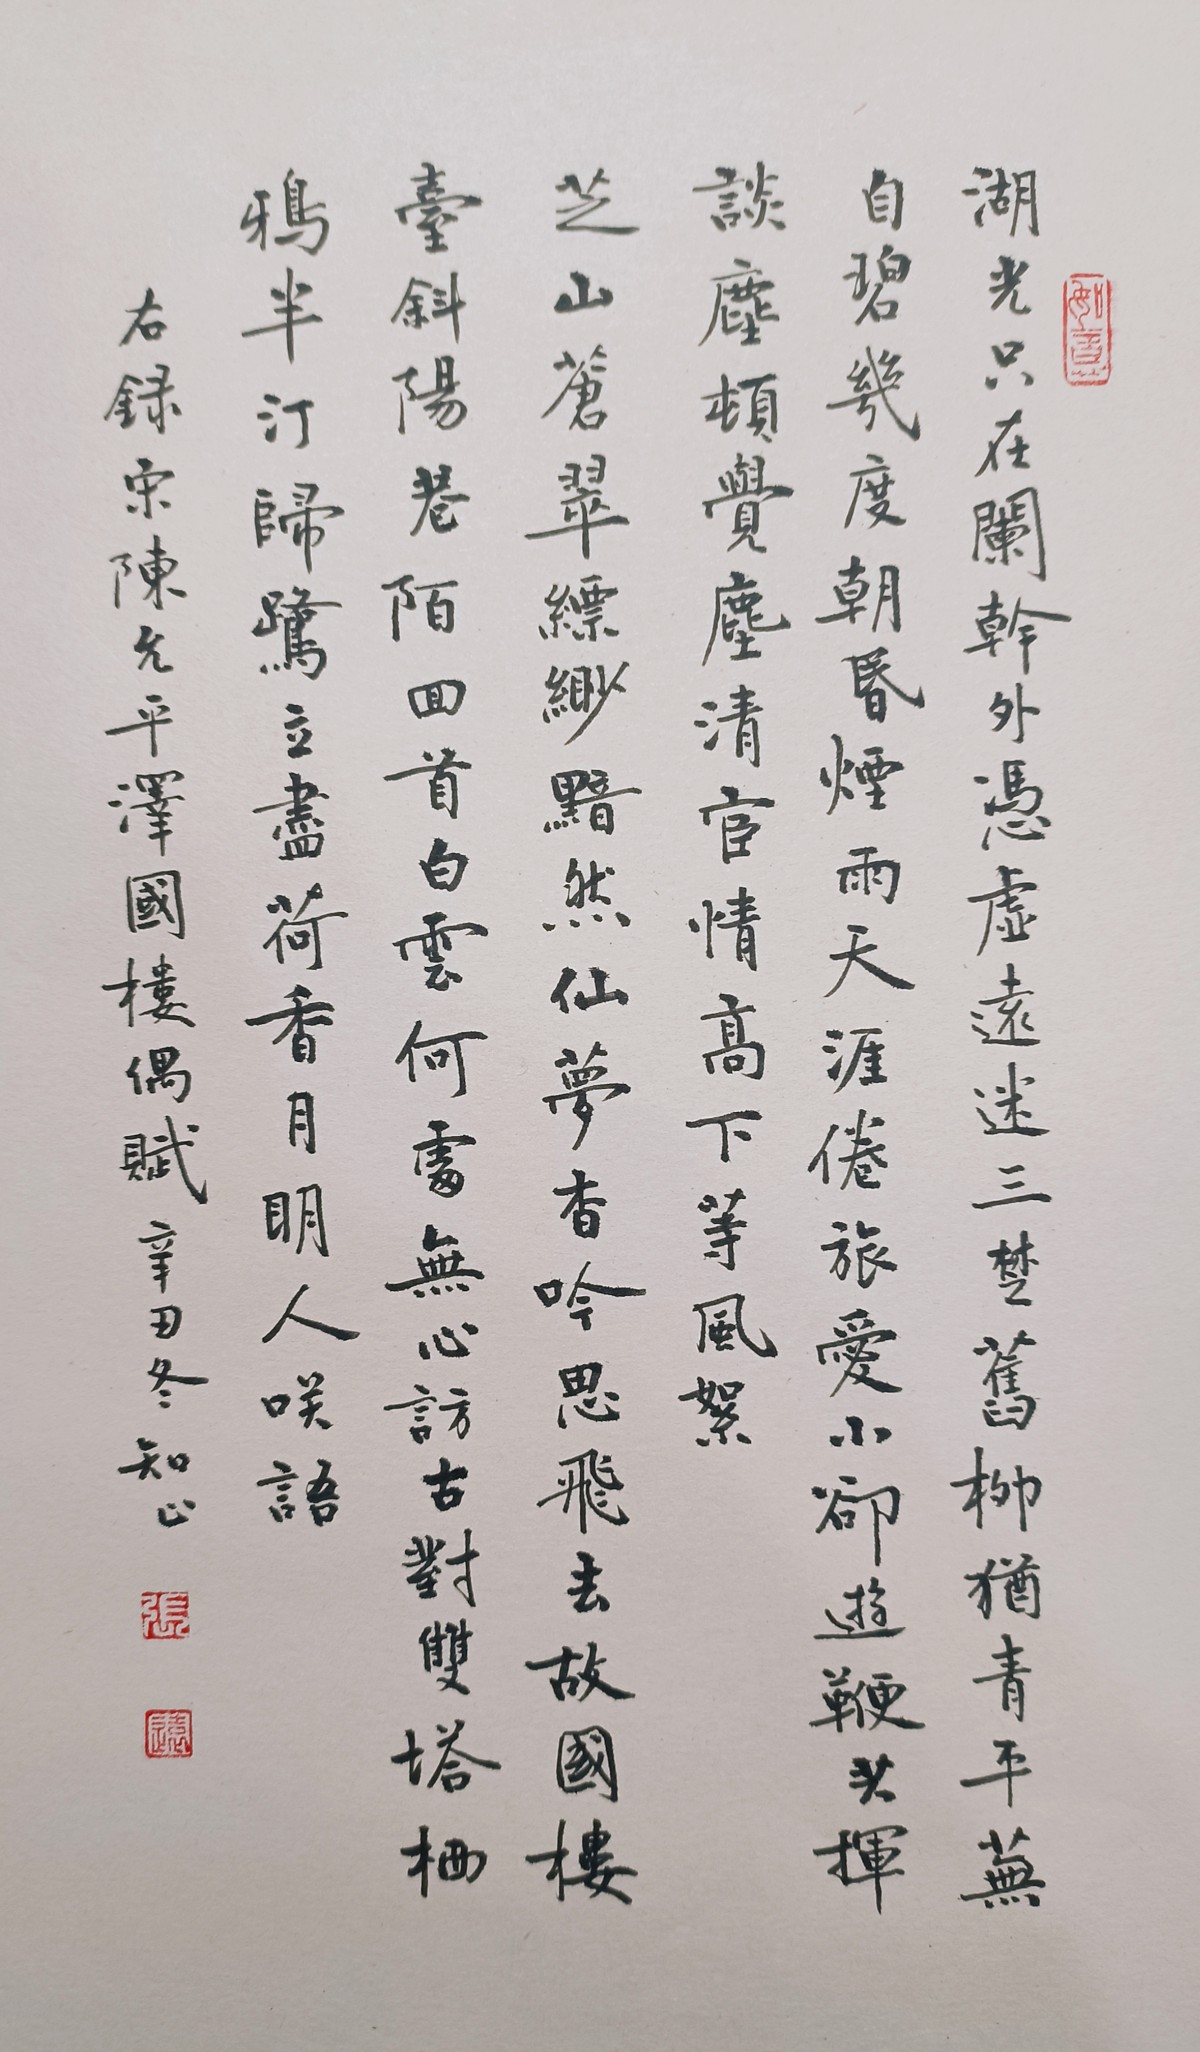 湖光只在闌幹外憑虛遠迷三楚舊柳猶青平蕪
自碧幾度朝昏煙雨天涯倦旅愛小卻遊鞭共揮
談麈頓覺塵清宦情高下等風絮
芝山蒼翠縹緲黯然仙夢杳吟思飛去故國樓
臺斜陽巷陌回首白雲何處無心訪古對雙塔栖
鴉半汀歸鷺立盡荷香月明人咲語
右録宋陳允平澤國樓偶賦辛丑冬知止
如意
張